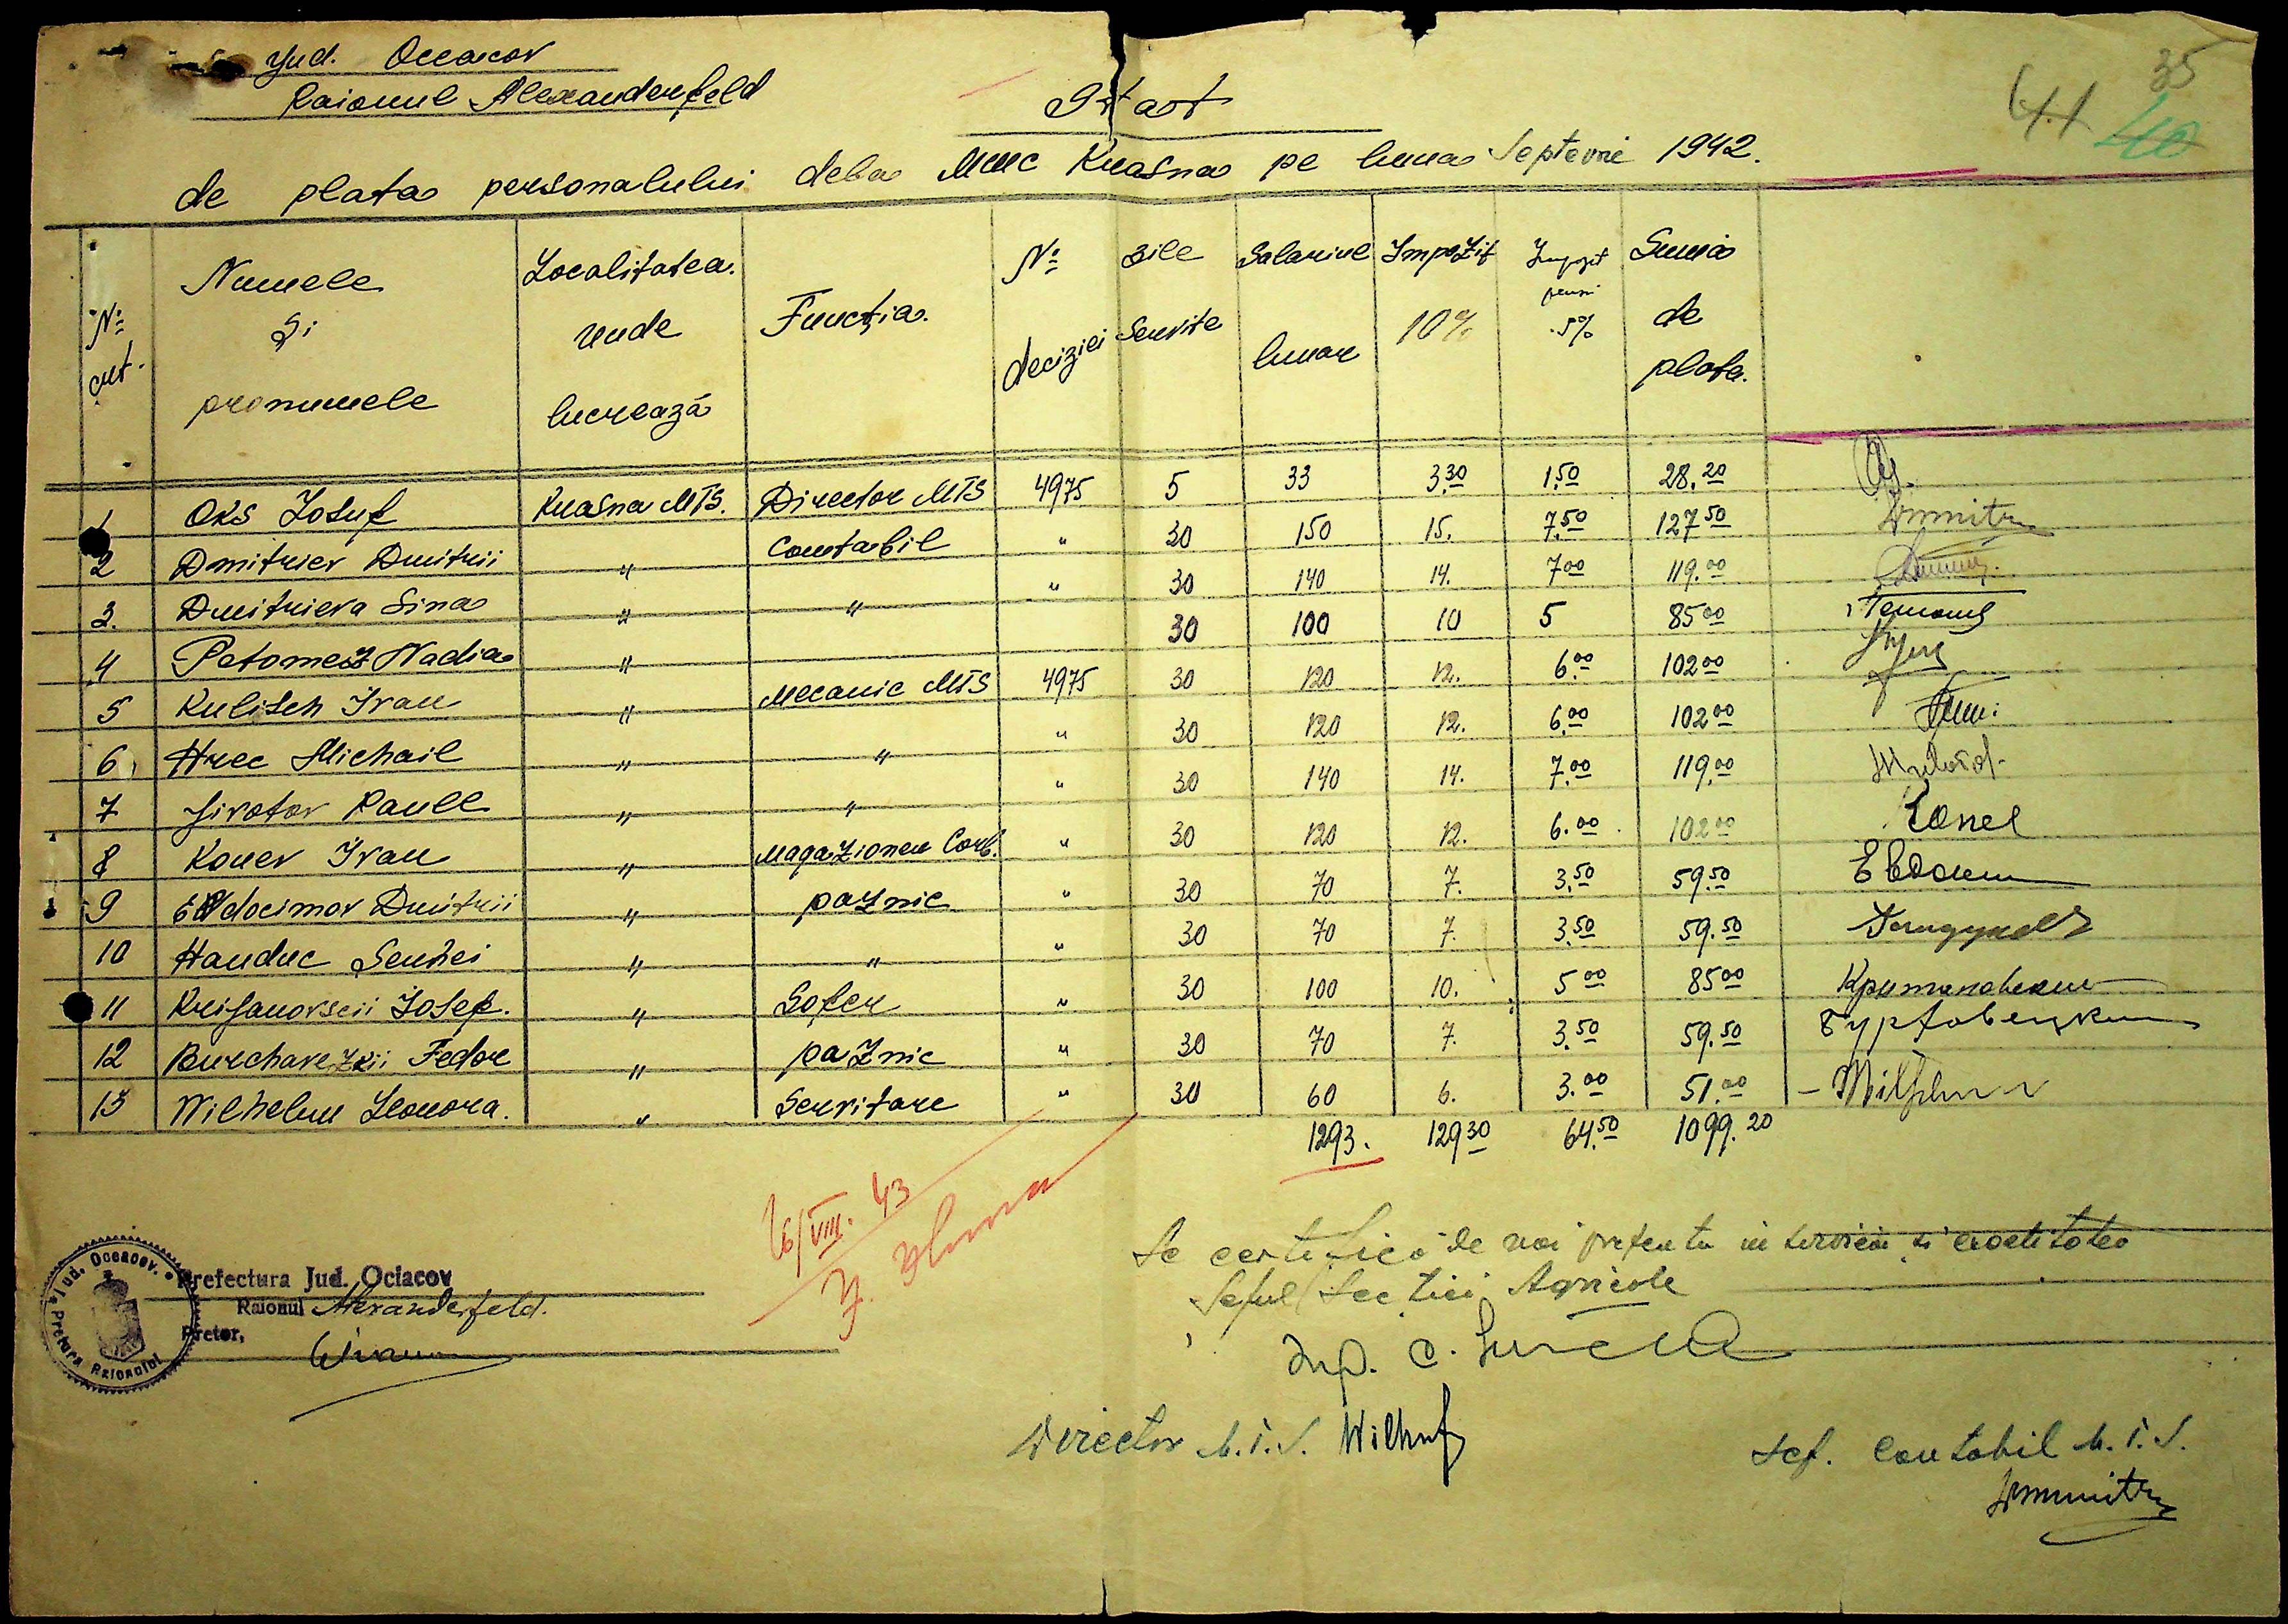 Jud. Oceacov
Raionul Alexanderfeld
35
41 40
Stat
de plata personalului dela MTC Krasna pe luna Septevrie 1942.
№ crt. Numele și pronumele Localitatea unde lucrează Funcția. № deciziei Zile Servite Salariul lunar Impozit 10% Impozit pensi 5% Suma de plata.
1 Oks Iosuf Krasna MTS. Director MTS 4975 5 33 3.30 1.50 28.20
2 Dmitriev Dmitrii " Contabil " 30 150 15. 7.50 127.50
3. Dmitrieva Sina " " " 30 140 14. 7.00 119.00
4 Potomesz Nadia " 30 100 10 5 85.00
5 Kulisch Ivan " Mecanic MTS 4975 30 120 12. 6.00 102.00
6, Hrec Michail " " " 30 120 12. 6.00 102.00
7 Jivotov Paull " " " 30 140 14. 7.00 119.00
8 Konev Ivan " Magazioner Comb. " 30 120 12. 6.00 102.00 Конев
9 Evdocimov Dmitrii " paznic " 30 70 7. 3.50 59.50 Евдоким
10 Handuc Serhei " " " 30 70 7. 3.50 59.50
11 Krijanovscii Iosef. " Sofer " 30 100 10. 5.00 85.00
12 Burchavezkii Fedor " paznic " 30 70 7. 3.50 59.50
13 Wilhelm Leonora. " Servitare " 30 60 6. 3.00 51.00 - Wilhelm
1293. 129.30 64.50 1099.20
16/VIII. 43
Jud. Oceacov. Pretura Raionului
Prefectura Jud. Ociacov
Raionul Alexanderfeld.
Pretor,
Se certifică de noi prezenta in serviciu si exactitatea
Seful Sectiei Agricole
Ing. C.
Director M.T.S. Wilhelm
Sef. Contabil M.T.S.